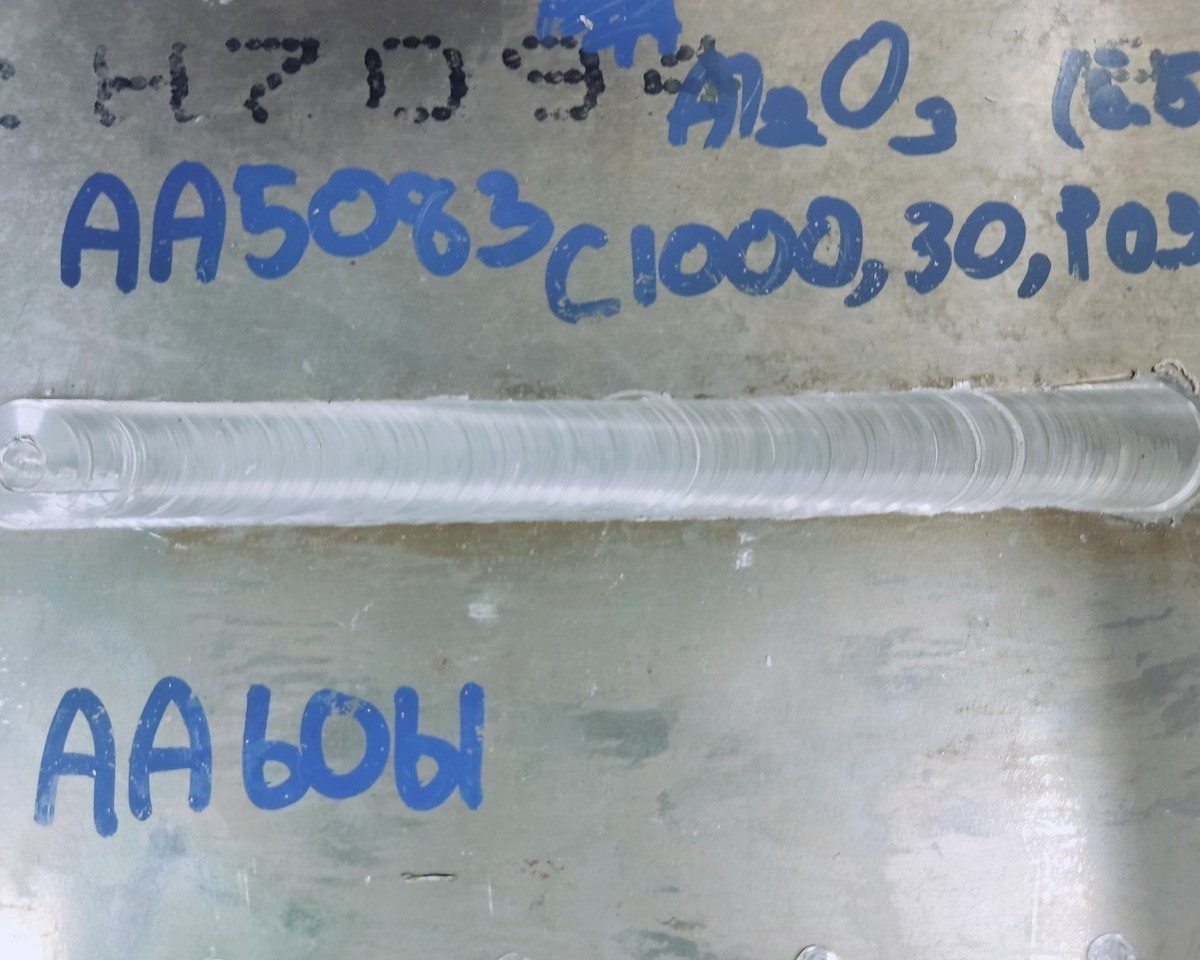 H709
Al₂O₃ (E5
AA5083
C1000,30,103
AA6061